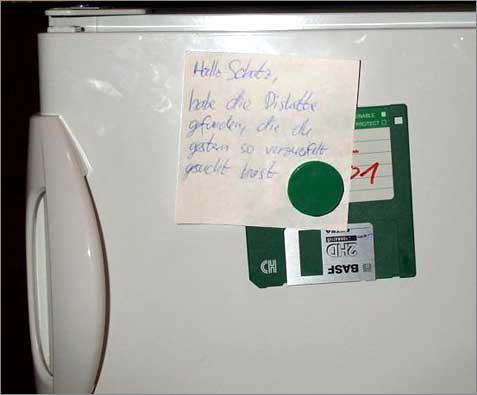 Hallo Schatz,
habe die Diskette
gefunden, die du
gestern so verzweifelt
gesucht hast
PROTECT
BASF
2HD
EXTRA